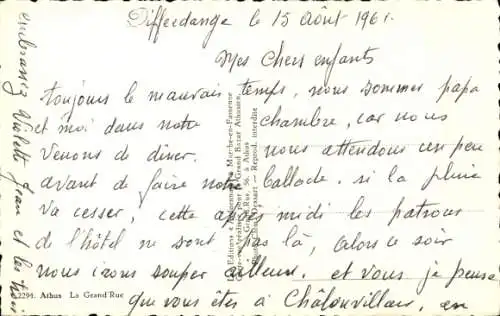 Differdange le 15 Août 1961.
Mes Chers enfants
toujours le mauvais temps, nous sommes papa
et moi dans notre chambre, car nous
venons de diner. nous attendons un peu
avant de faire notre ballade si la pluie
va cesser, cette après midi les patrons
de l'hôtel ne sont pas là, alors ce soir
nous irons souper ailleurs. et vous je pense
que vous êtes à Châlonvillars, en
embrassez Violette Jean et les
2294. Athus La Grand'Rue
Les Editions d'Ardenne Marche-en-Famenne
Grand Bazar Athusien,
Grand-Rue 56, à Athus
Reprod. interdite